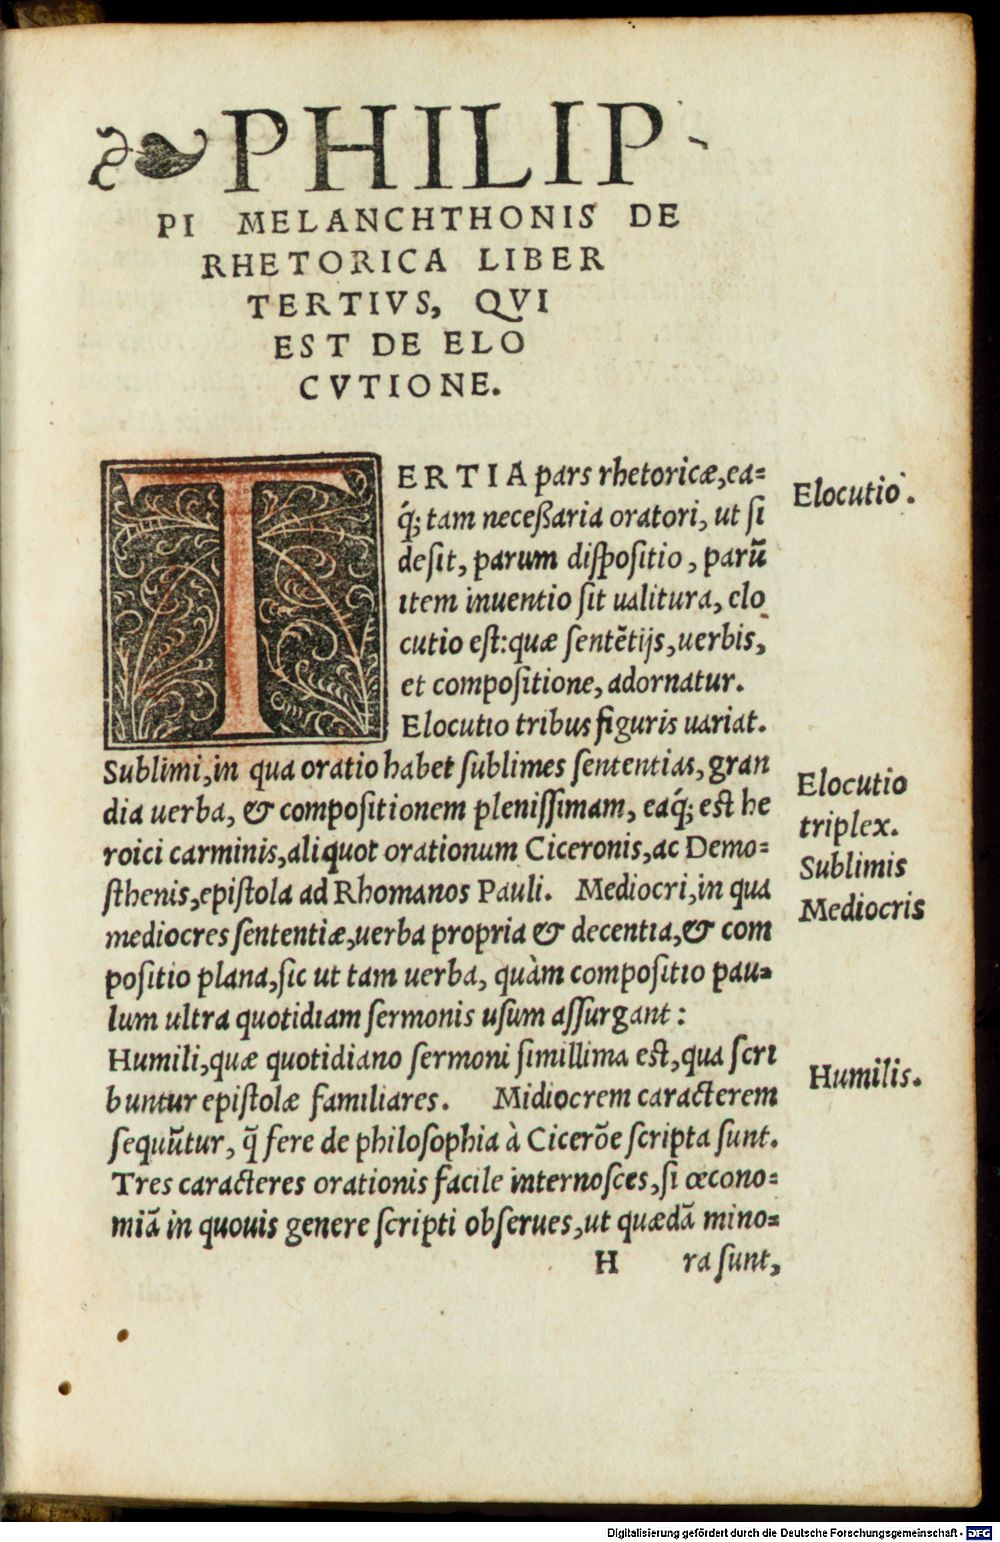 ❧PHILIP-
PI MELANCHTHONIS DE
RHETORICA LIBER
TERTIVS, QVI
EST DE ELO
CVTIONE.
TERTIA pars rhetoricæ, ea=
q́; tam neceßaria oratori, ut si
desit, parum dispositio, parū
item inuentio sit ualitura, elo
cutio est: quæ sentētijs, uerbis,
et compositione, adornatur.
Elocutio tribus figuris uariat.
Sublimi, in qua oratio habet sublimes sententias, gran
dia uerba, & compositionem plenissimam, eaq́; est he
roici carminis, aliquot orationum Ciceronis, ac Demo=
sthenis, epistola ad Rhomanos Pauli. Mediocri, in qua
mediocres sententiæ, uerba propria & decentia, & com
positio plana, sic ut tam uerba, quàm compositio pau=
lum ultra quotidiam sermonis usum assurgant:
Humili, quæ quotidiano sermoni simillima est, qua scri
buntur epistolæ familiares. Midiocrem caracterem
sequūtur, q̃ fere de philosophia à Cicerōe scripta sunt.
Tres caracteres orationis facile internosces, si œcono=
miā in quouis genere scripti obserues, ut quædā mino=
H ra sunt,
Elocutio.
Elocutio
triplex.
Sublimis
Mediocris
Humilis.
Digitalisierung gefördert durch die Deutsche Forschungsgemeinschaft - DFG